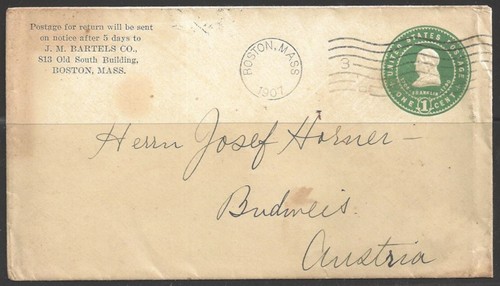 Postage for return will be sent
on notice after 5 days to
J. M. BARTELS CO.,
813 Old South Building,
BOSTON, MASS.
BOSTON, MASS
1907
3
UNITED STATES POSTAGE
FRANKLIN
ONE 1 CENT
Herrn Josef Horner
Budweis
Austria